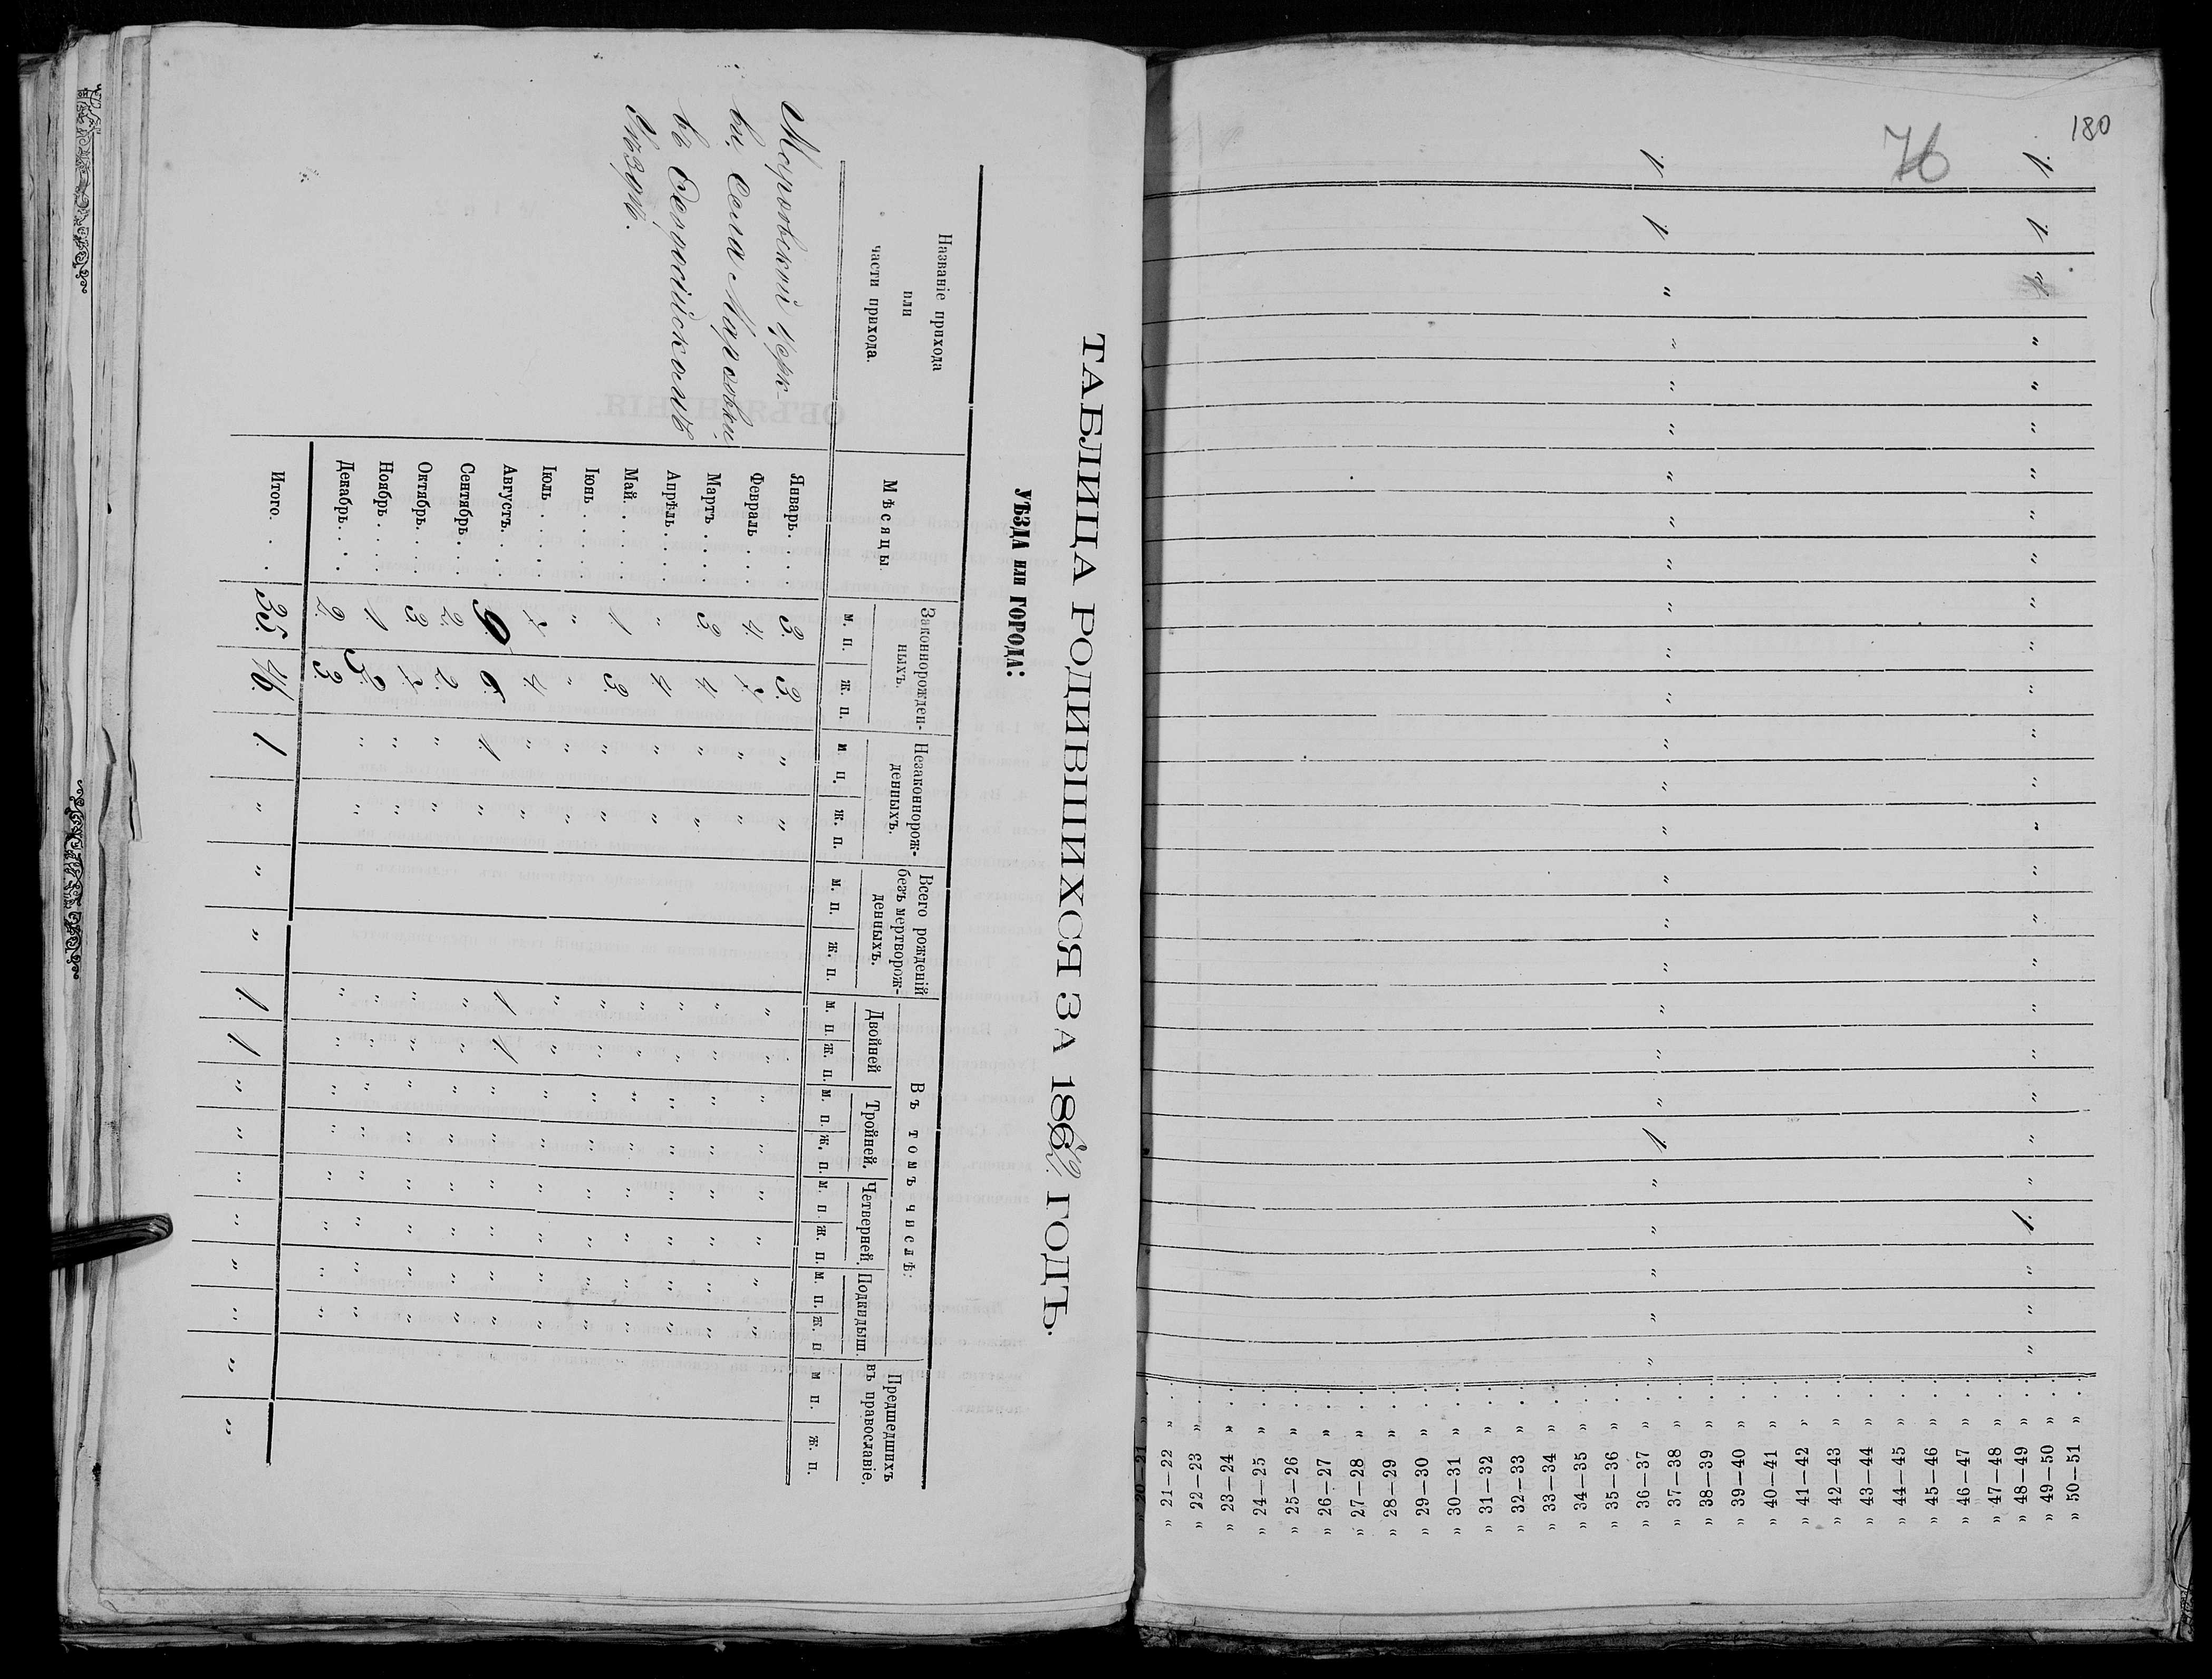 ТАБЛИЦА РОДИВШИХСЯ ЗА 1862 ГОДЪ.
УѢЗДА или ГОРОДА:
Названіе прихода или части прихода. Мѣсяцы. Законнорожденныхъ. Незаконнорожденныхъ. Всего рожденій безъ мертворожденныхъ. Въ томъ числѣ: Предшедшихъ въ православіе.
Двойней Тройней. Четверней. Подкидыш.
м. п. ж. п. м п. ж. п. м. п. ж. п. м. п. ж. п. м. п. ж. п. м. п. ж. п. м. п. ж. п м п. ж. п.
Маровской церк-
ви, села Маровки
въ
Уѣздѣ.
Январь . . . 3. 3. " " " " " " " " " "
Февраль . . . 4. " " " " " " " " " "
Мартъ . . . . 3. 4. " " " " " " " " " "
Апрѣль . . . " 4 " " " " " " " " " "
Май. . . . . 1 3. " " " " " " " " " "
Іюнь . . . . " " " " " " " " " " " "
Іюль . . . . 4. " " " " " " " " " "
Августъ. . . 9. 6. 1. " 1 1. " " " " " "
Сентябрь . . 2. 2. " " " " " " " " " "
Октябрь. . . 3. " " " " " " " " " "
Ноябрь . . . 1 5. " " " " " " " " " "
Декабрь. . . 2. 3. " " " " " " " " " "
Итого. . . 35. 46. 1. " " " 1. 1 " " " " " " " "
180
76
1. 1. " " " " " " " " " " " " " " " " " " " " " 1 " " " " "
1. 1. " " " " " " " " " " " " " " " " " " " " " " " 1. " " "
" 20—21 "
" 21—22 " .
" 22—23 " .
" 23—24 " .
" 24—25 " .
" 25—26 " .
" 26—27 " .
" 27—28 " .
" 28—29 " .
" 29—30 " .
" 30—31 " .
" 31—32 " .
" 32—33 " .
" 33—34 " .
" 34—35 " .
" 35—36 " .
" 36—37 " .
" 37—38 " .
" 38—39 " .
" 39—40 " .
" 40—41 " .
" 41—42 " .
" 42—43 " .
" 43—44 " .
" 44—45 " .
" 45—46 " .
" 46—47 " .
" 47—48 " .
" 48—49 " .
" 49—50 " .
" 50—51 " .